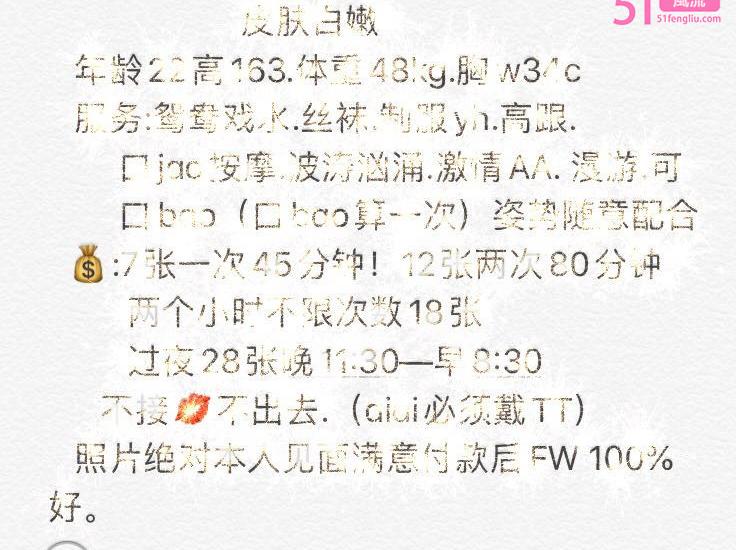 皮肤白嫩
51风流
51fengliu.com
年龄22高163.体重48kg.胸w34c
服务:鸳鸯戏水.丝袜.制服yh.高跟.
口jao按摩.波涛汹涌.激情AA.漫游.可
口bao（口bao算一次）姿势随意配合
💰:7张一次45分钟！12张两次80分钟
两个小时不限次数18张
过夜28张晚11:30—早8:30
不接💋不出去.（aiai必须戴TT）
照片绝对本人见面满意付款后FW100%
好。